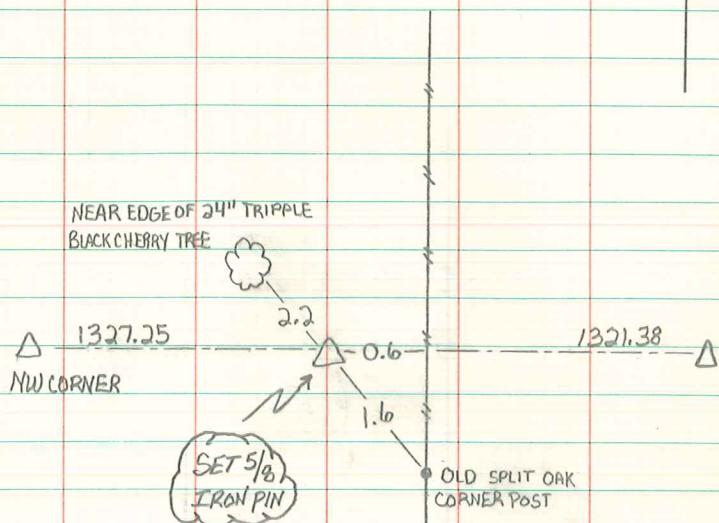 NEAR EDGE OF 24" TRIPPLE
BLACK CHERRY TREE
2.2
1327.25
0.6
1321.38
NW CORNER
1.6
SET 5/8
IRON PIN
OLD SPLIT OAK
CORNER POST